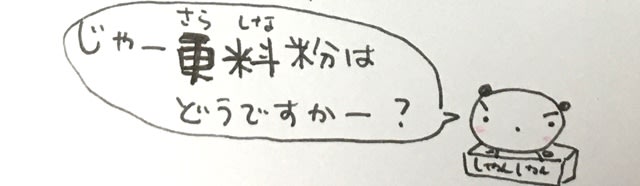 さら しな
じゃー更料粉は
どうですかー?
しゃんしゃん